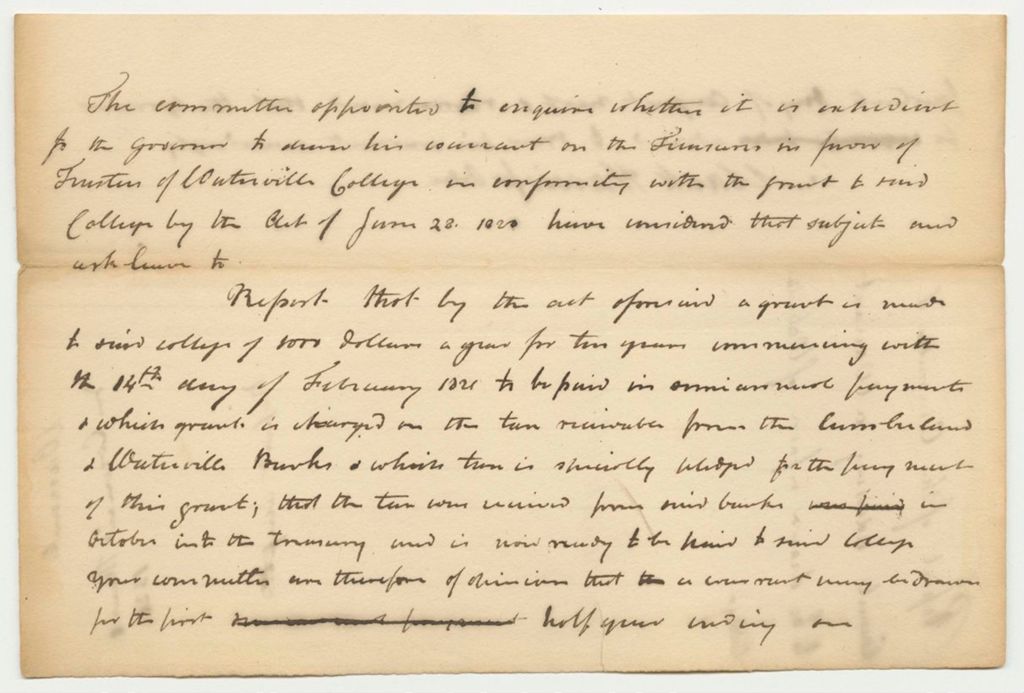 The committee appointed to enquire whether it is expedient
for the Governor to draw his warrant on the Treasurer in favor of
Trustees of Waterville College in conformity with the grant to said
College by the Act of June 28. 1820 have considered that subject and
ask leave to
Report that by the act aforesaid a grant is made
to said college of 1000 dollars a year for ten years commencing with
the 14th day of February 1821 to be paid in semiannual payments
& which grant is charged on the tax receivable from the Cumberland
& Waterville Banks & which tax is specially pledged for the payment
of this grant; that the tax was received from said banks was paid in
October into the treasury and is now ready to be paid to said College
Your committee are therefore of opinion that a warrant may be drawn
for the first semiannual payment half year ending on